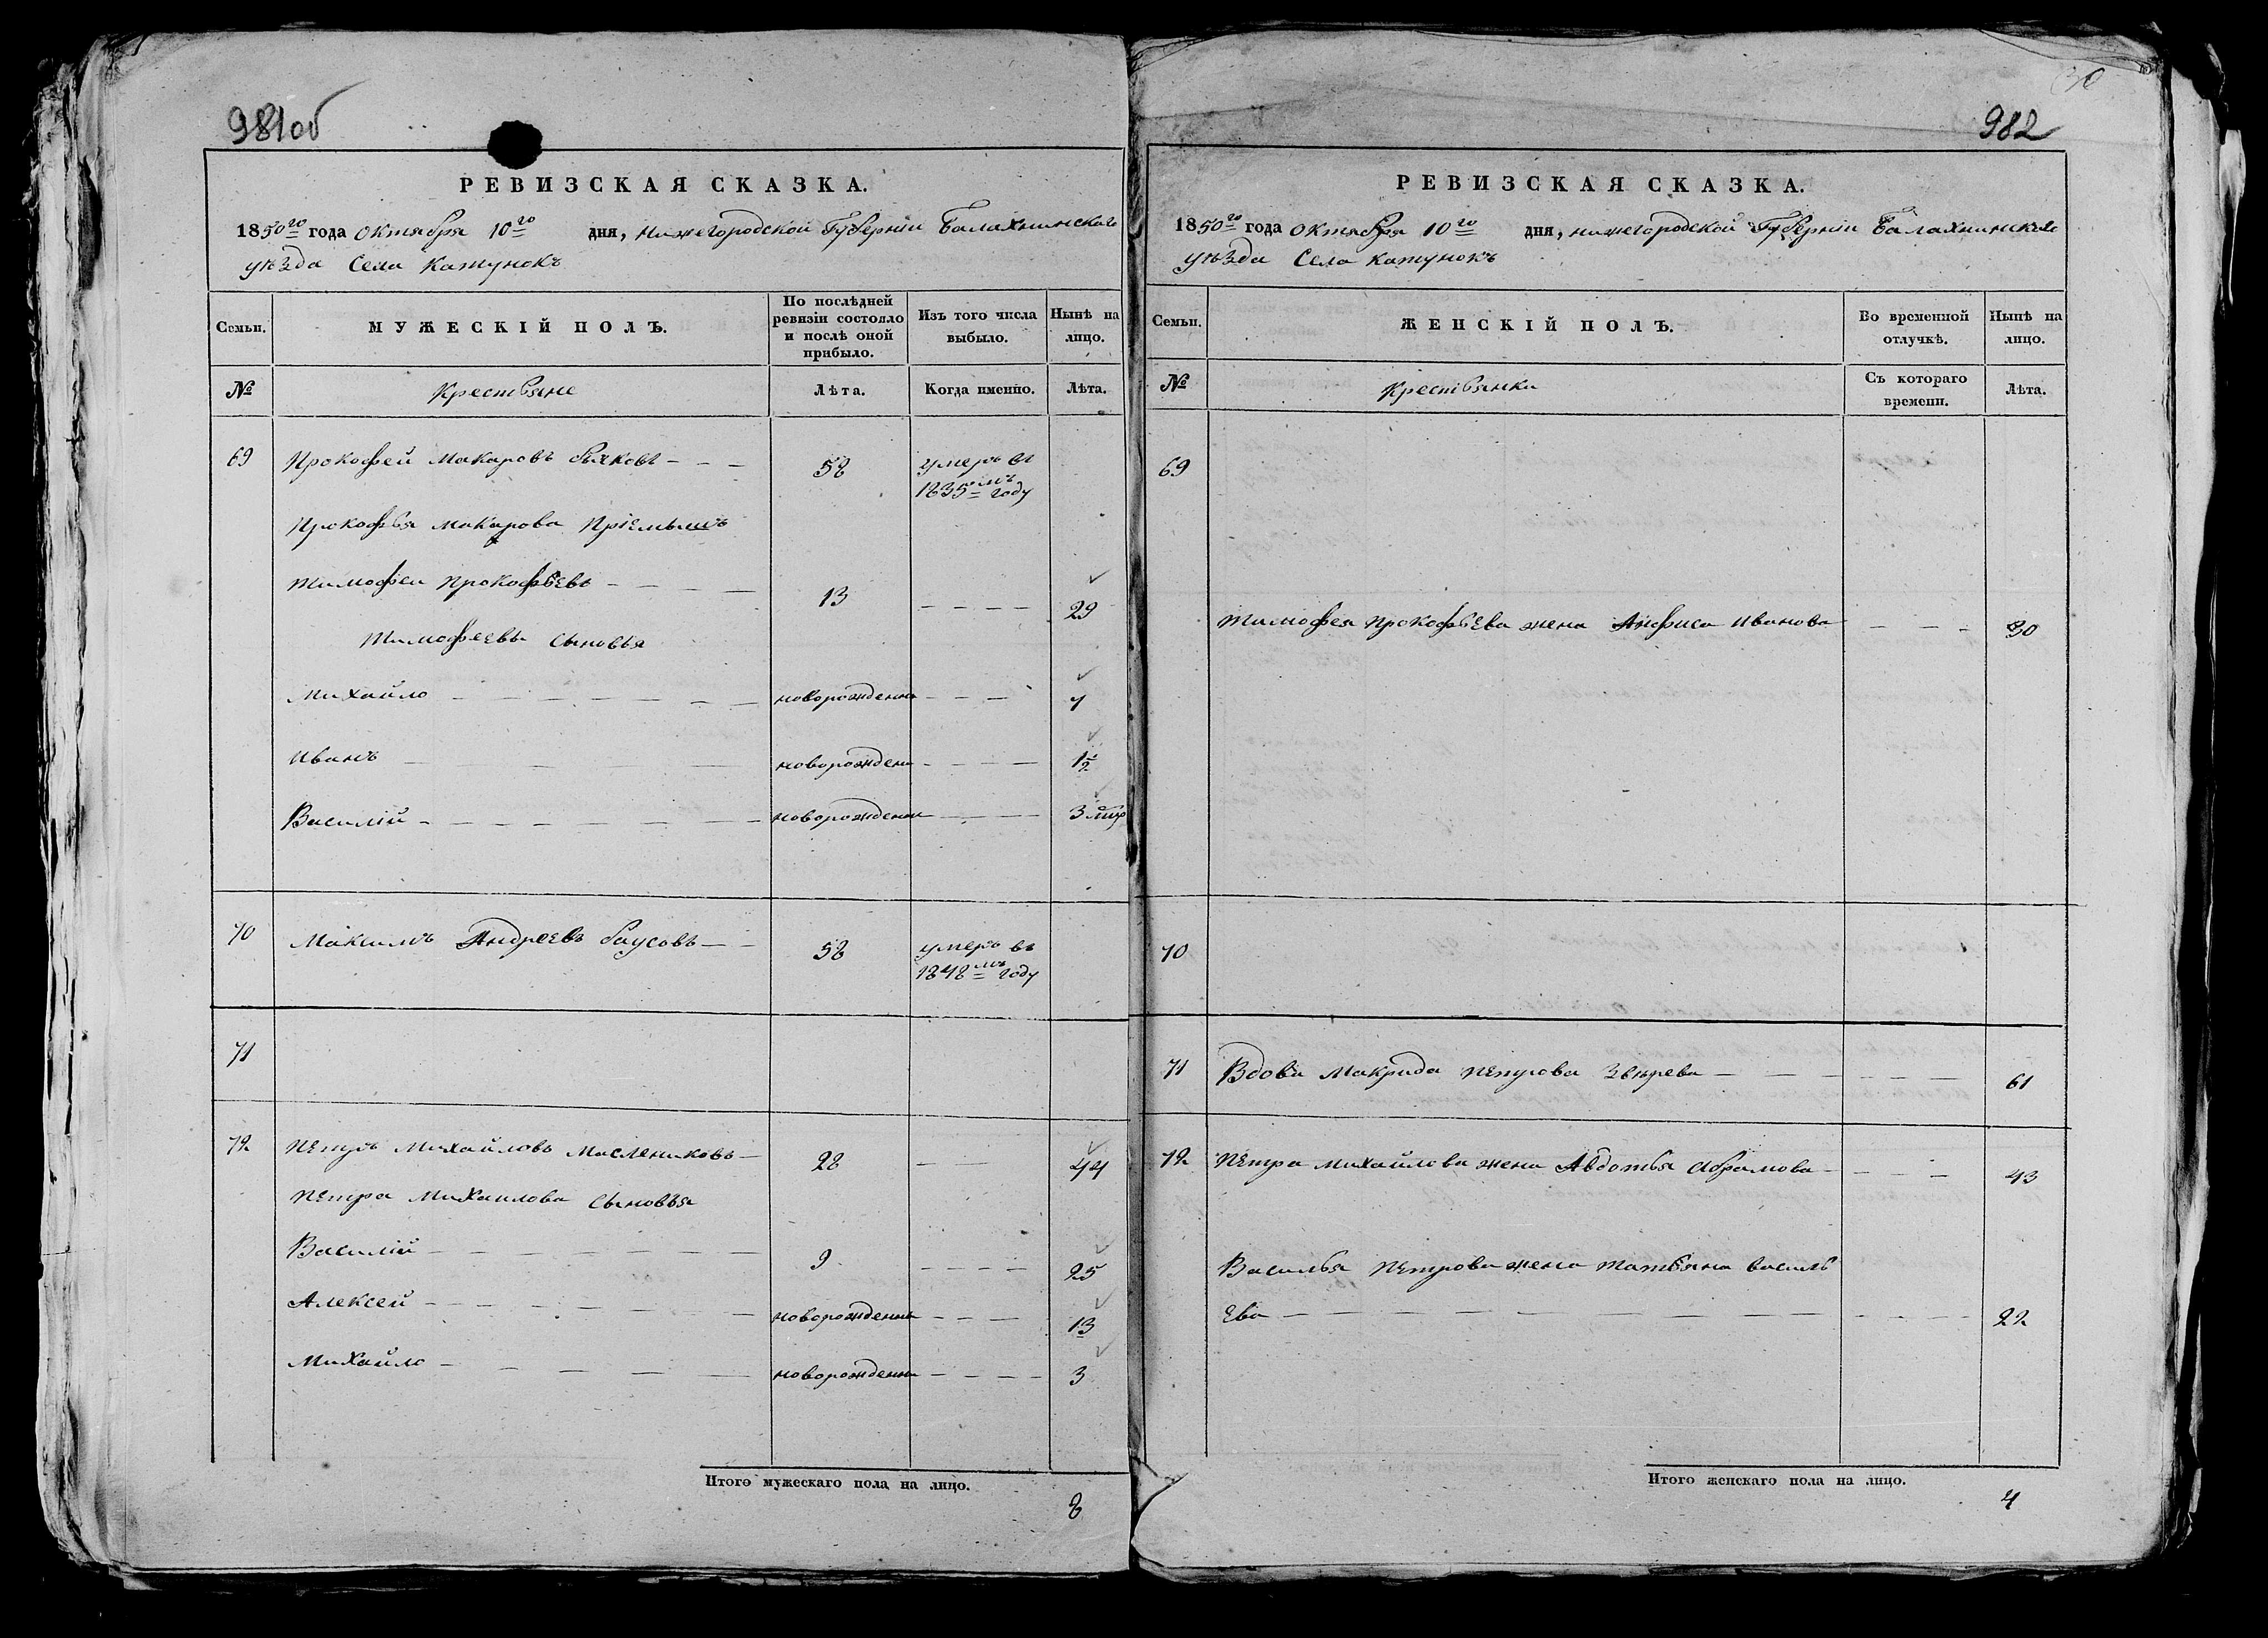 981об
РЕВИЗСКАЯ СКАЗКА.
1850го года Октября 10го дня, Нижегородской Губерніи Балахнинскаго
уѣзда Села Катунокъ
Семьи.
МУЖЕСКІЙ ПОЛЪ.
По послѣдней ревизіи состояло и послѣ оной прибыло.
Изъ того числа выбыло.
Нынѣ на лицо.
№
Крестьяне
Лѣта.
Когда именно.
Лѣта.
69 Прокофей Макаровъ — — — 58 умеръ въ
1835мъ году
Прокофья Макарова Пріемышъ
Тимофеи Прокофьевъ — — — 13 — — — — 29
Тимофеевы сыновья
Михайло — — — — — — новорожденн — — — 7
Иванъ — — — новорожденн — — — — 1½
Василій — — — — — — новорожденн — — —
70 Максимъ Андреевъ Баусовъ — — 58 умеръ въ
1848мъ году
71
72 Петръ Михайловъ Маслениковъ — 28 — — 44
Петра Михаилова сыновья
Василій — — — — — — 9 — — — — 25
Алексей — — — — — — новорожденн — — — 13
Михайло — — — — — новорожденн — — — — 3
Итого мужескаго пола на лицо.
8
982
РЕВИЗСКАЯ СКАЗКА.
1850го года Октября 10го дня, Нижегородской Губерніи Балахнинскаго
уѣзда Села Катунокъ
Семьи.
ЖЕНСКІЙ ПОЛЪ.
Во временной отлучкѣ.
Нынѣ на лицо.
№
Крестьянки
Съ котораго времени.
Лѣта.
69
Тимофея Прокофьева жена Анфиса Иванова — — — 30
70
71 Вдова Макрида Петрова Звѣрева — — — — — — 61
72 Петра Михайлова жена Авдотья Абрамова — — — — 43
Василья Петрова жена Татьяна Василь
ева — — — — — — — — — — 22
Итого женскаго пола на лицо.
4